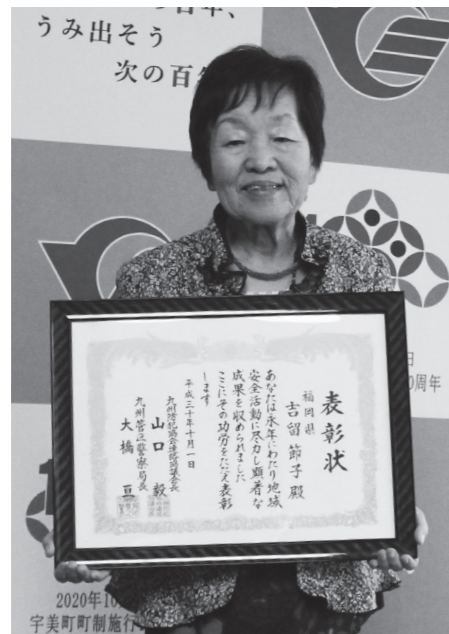 の百年、
うみ出そう
次の百年
日
0周年
表彰状
福岡県
吉留節子殿
あなたは永年にわたり地域
安全活動に尽力し顕著な
成果を収められました
ここにその功労をたたえ表彰
します
平成三十年十月一日
九州防犯協会連絡協議会長
山口毅
九州管区警察局長
大橋亘
2020年10
宇美町町制施行